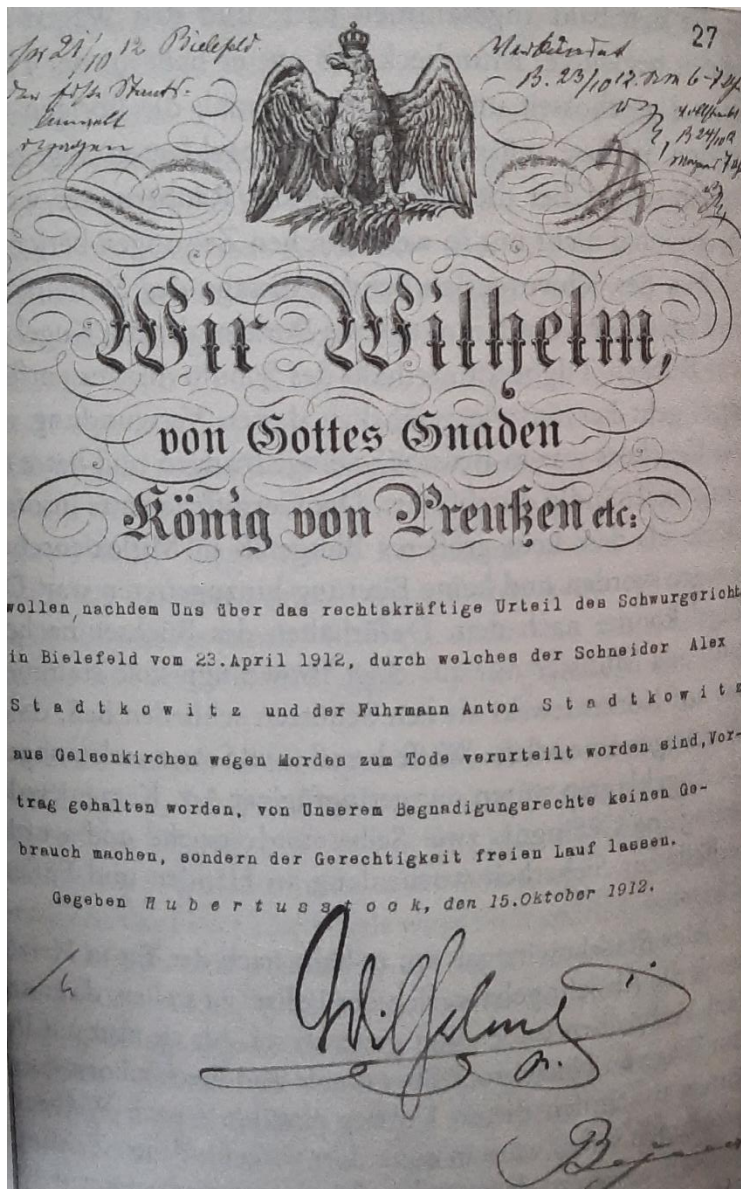 21/10 12 Bielefeld.
Der Erste Staats-
anwalt
27
Verkündet
B. 23/10 12. Nm 6-7
B 24/10 12
Wir Wilhelm,
von Gottes Gnaden
König von Preußen etc:
wollen, nachdem Uns über das rechtskräftige Urteil des Schwurgericht
in Bielefeld vom 23.April 1912, durch welches der Schneider Alex
S t a d t k o w i t z und der Fuhrmann Anton S t a d t k o w i t z
aus Gelsenkirchen wegen Mordes zum Tode verurteilt worden sind, Vor-
trag gehalten worden, von Unserem Begnadigungsrechte keinen Ge-
brauch machen, sondern der Gerechtigkeit freien Lauf lassen.
Gegeben H u b e r t u s s t o c k, den 15.Oktober 1912.
Wilhelm
R.